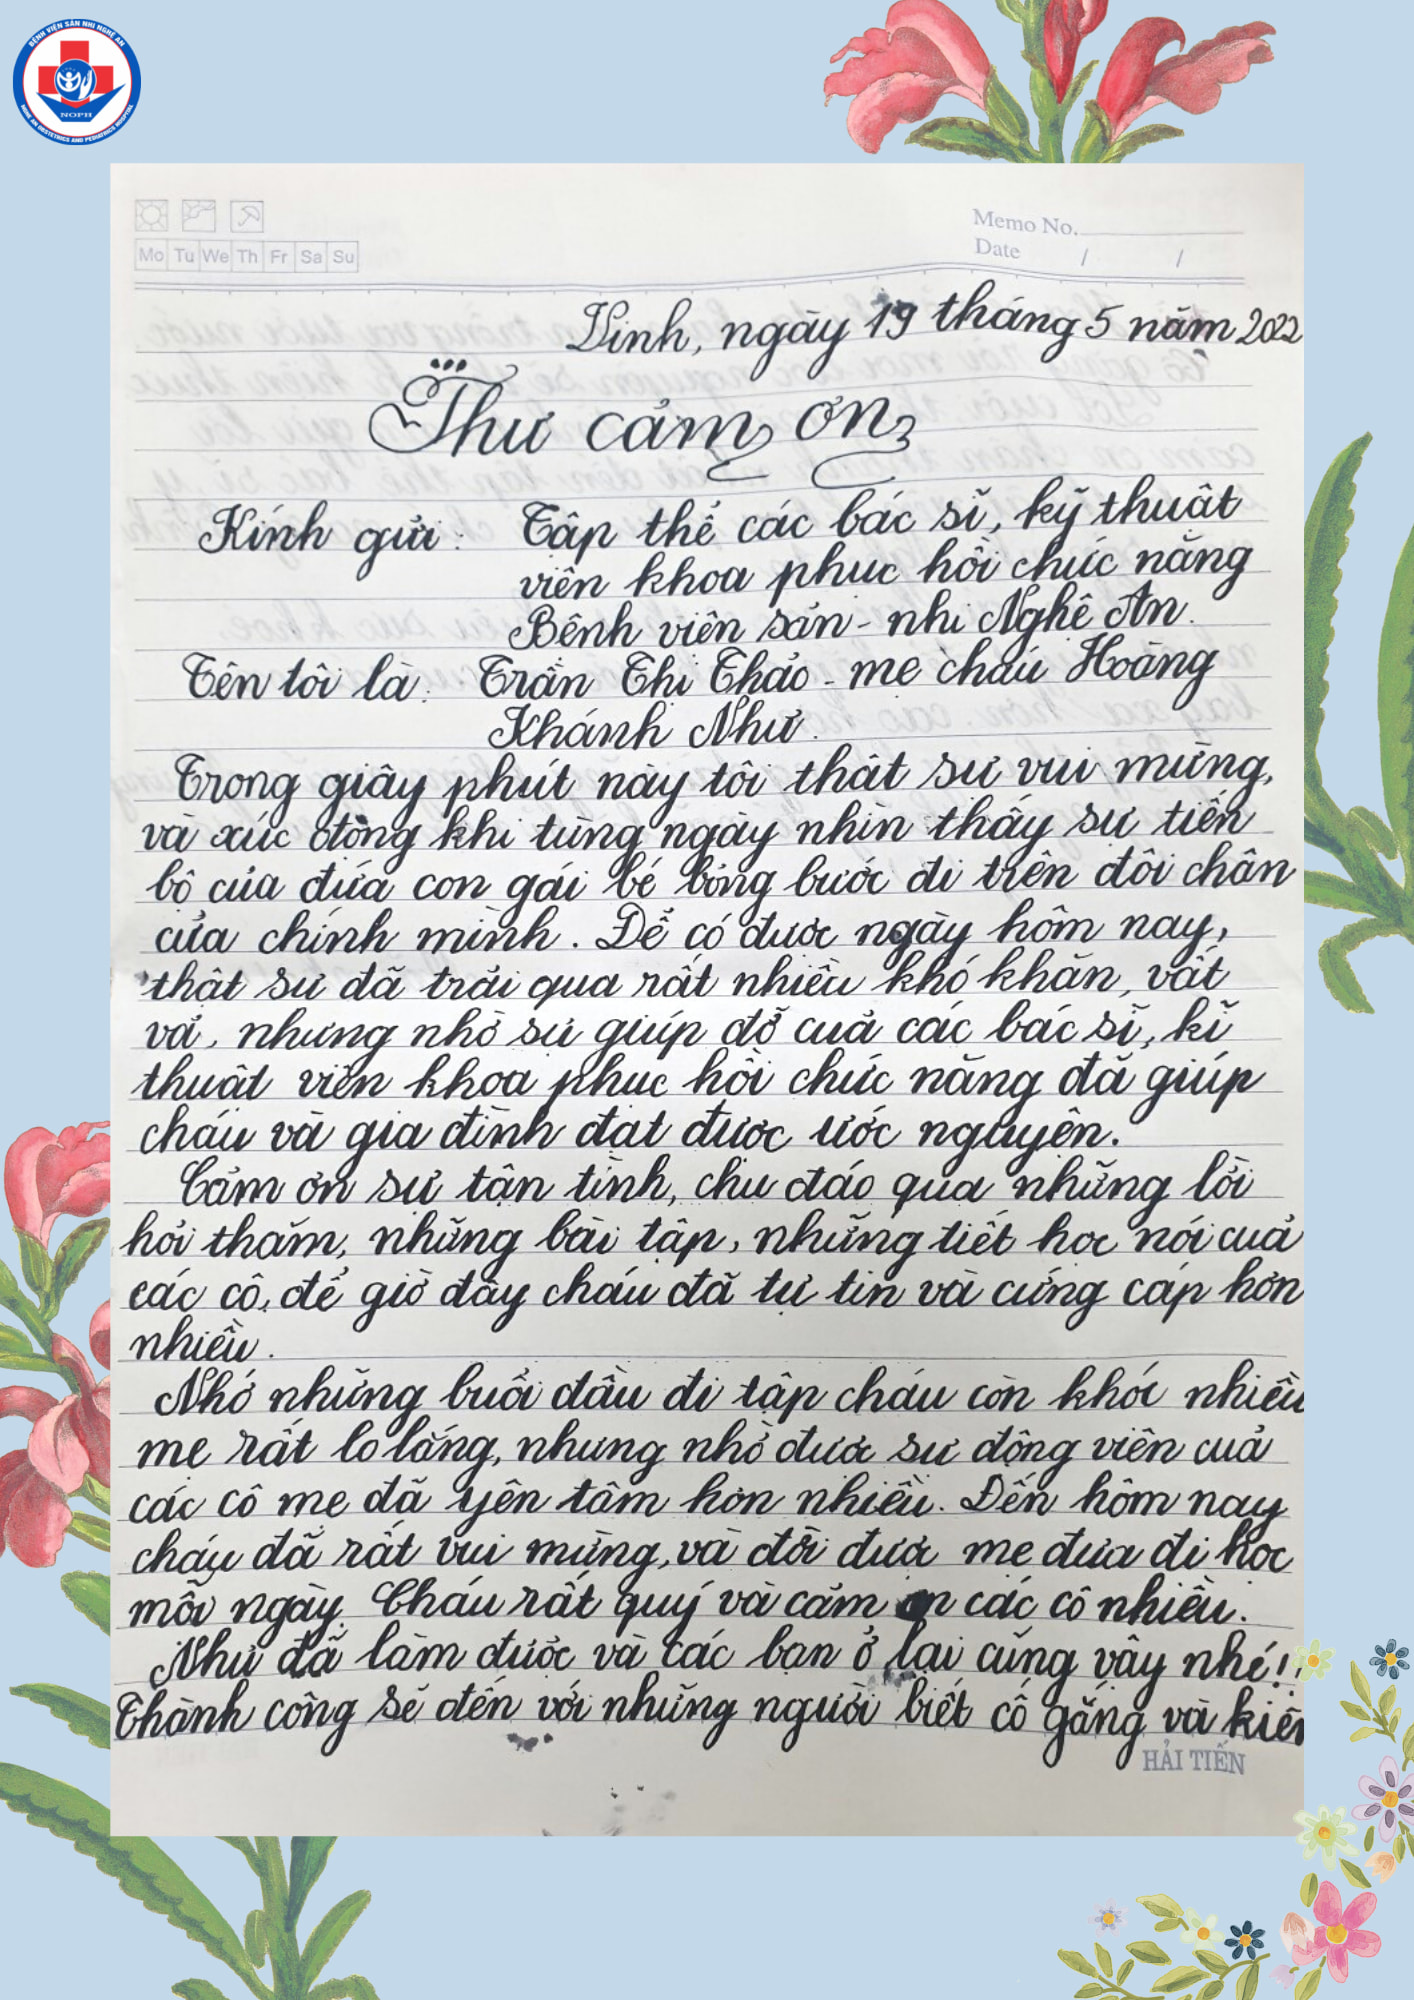 BỆNH VIỆN SẢN NHI NGHỆ AN
NOPH
NGHE AN OBSTETRICS AND PEDIATRICS HOSPITAL
Memo No.
Mo Tu We Th Fr Sa Su
Date / /
Vinh, ngày 19 tháng 5 năm 2022
Thư cảm ơn
Kính gửi: Tập thể các bác sĩ, kỹ thuật
viên khoa phục hồi chức năng
Bệnh viện sản - nhi Nghệ An.
Tên tôi là: Trần Thị Thảo - mẹ cháu Hoàng
Khánh Như.
Trong giây phút này tôi thật sự vui mừng,
và xúc động khi từng ngày nhìn thấy sự tiến
bộ của đứa con gái bé bỏng bước đi trên đôi chân
của chính mình. Để có được ngày hôm nay,
thật sự đã trải qua rất nhiều khó khăn, vất
vả, nhưng nhờ sự giúp đỡ của các bác sĩ, kĩ
thuật viên khoa phục hồi chức năng đã giúp
cháu và gia đình đạt được ước nguyện.
Cảm ơn sự tận tình, chu đáo qua những lời
hỏi thăm, những bài tập, những tiết học nói của
các cô, để giờ đây cháu đã tự tin và cứng cáp hơn
nhiều.
Nhớ những buổi đầu đi tập cháu còn khóc nhiều
mẹ rất lo lắng, nhưng nhờ được sự động viên của
các cô mẹ đã yên tâm hơn nhiều. Đến hôm nay
cháu đã rất vui mừng, và đòi được mẹ đưa đi học
mỗi ngày. Cháu rất quý và cảm ơn các cô nhiều.
Như đã làm được và các bạn ở lại cũng vậy nhé!
Thành công sẽ đến với những người biết cố gắng và kiên
HẢI TIẾN